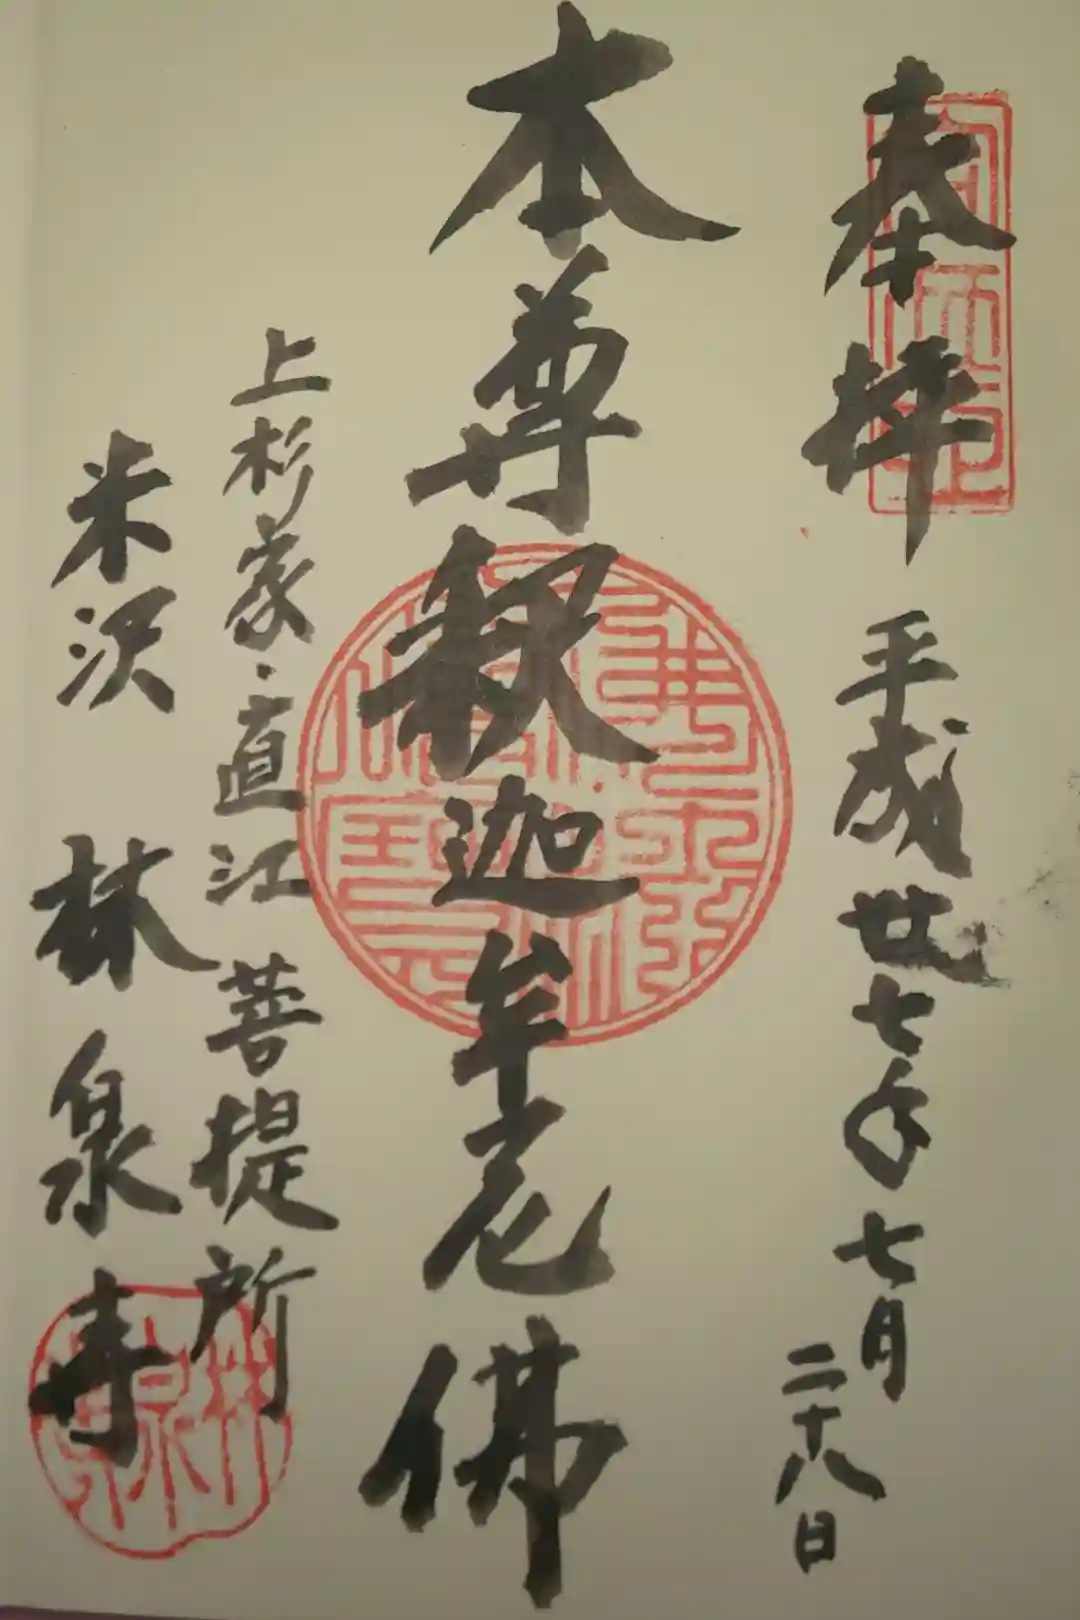 奉拝
平成廿七年七月
二十八日
本尊釈迦牟尼佛
上杉家・直江菩提所
米沢 林泉寺
林泉寺